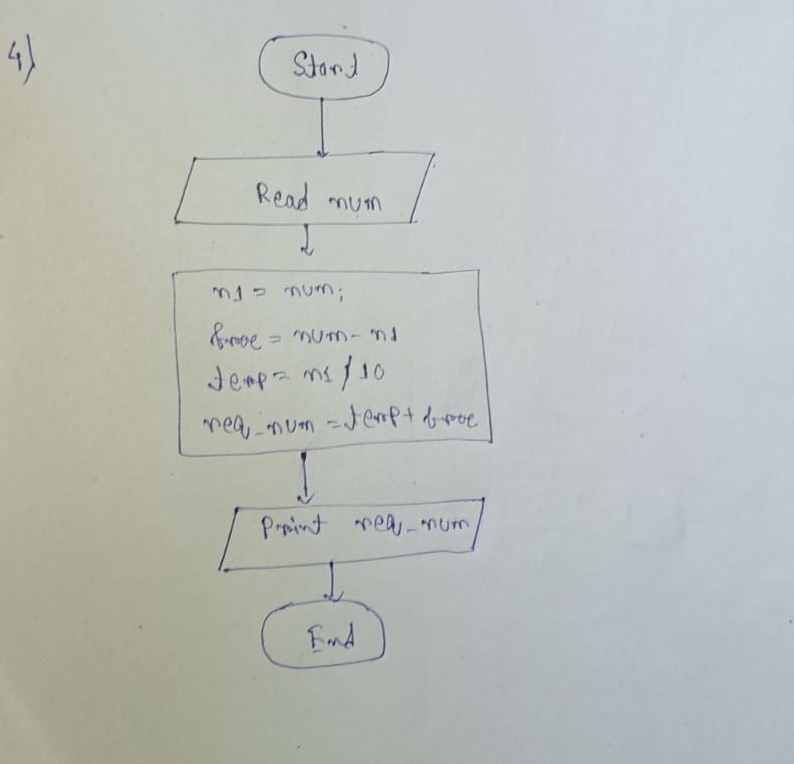 4)
Start
Read num
n1 = num;
frac = num - n1
temp = n1 / 10
req_num = temp + frac
Print req_num
End